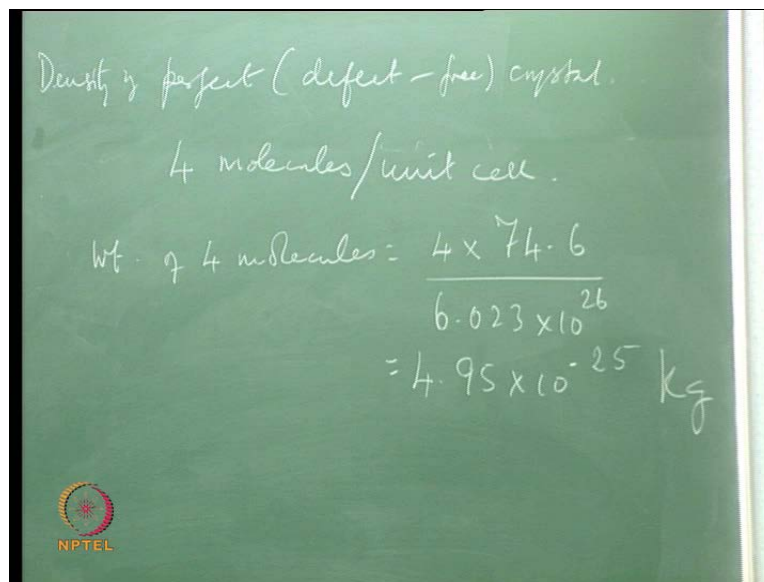 Density of perfect (defect-free) crystal.
4 molecules/unit cell.
Wt. of 4 molecules = 4 x 74.6
6.023 x 10^26
= 4.95 x 10^-25 Kg
NPTEL